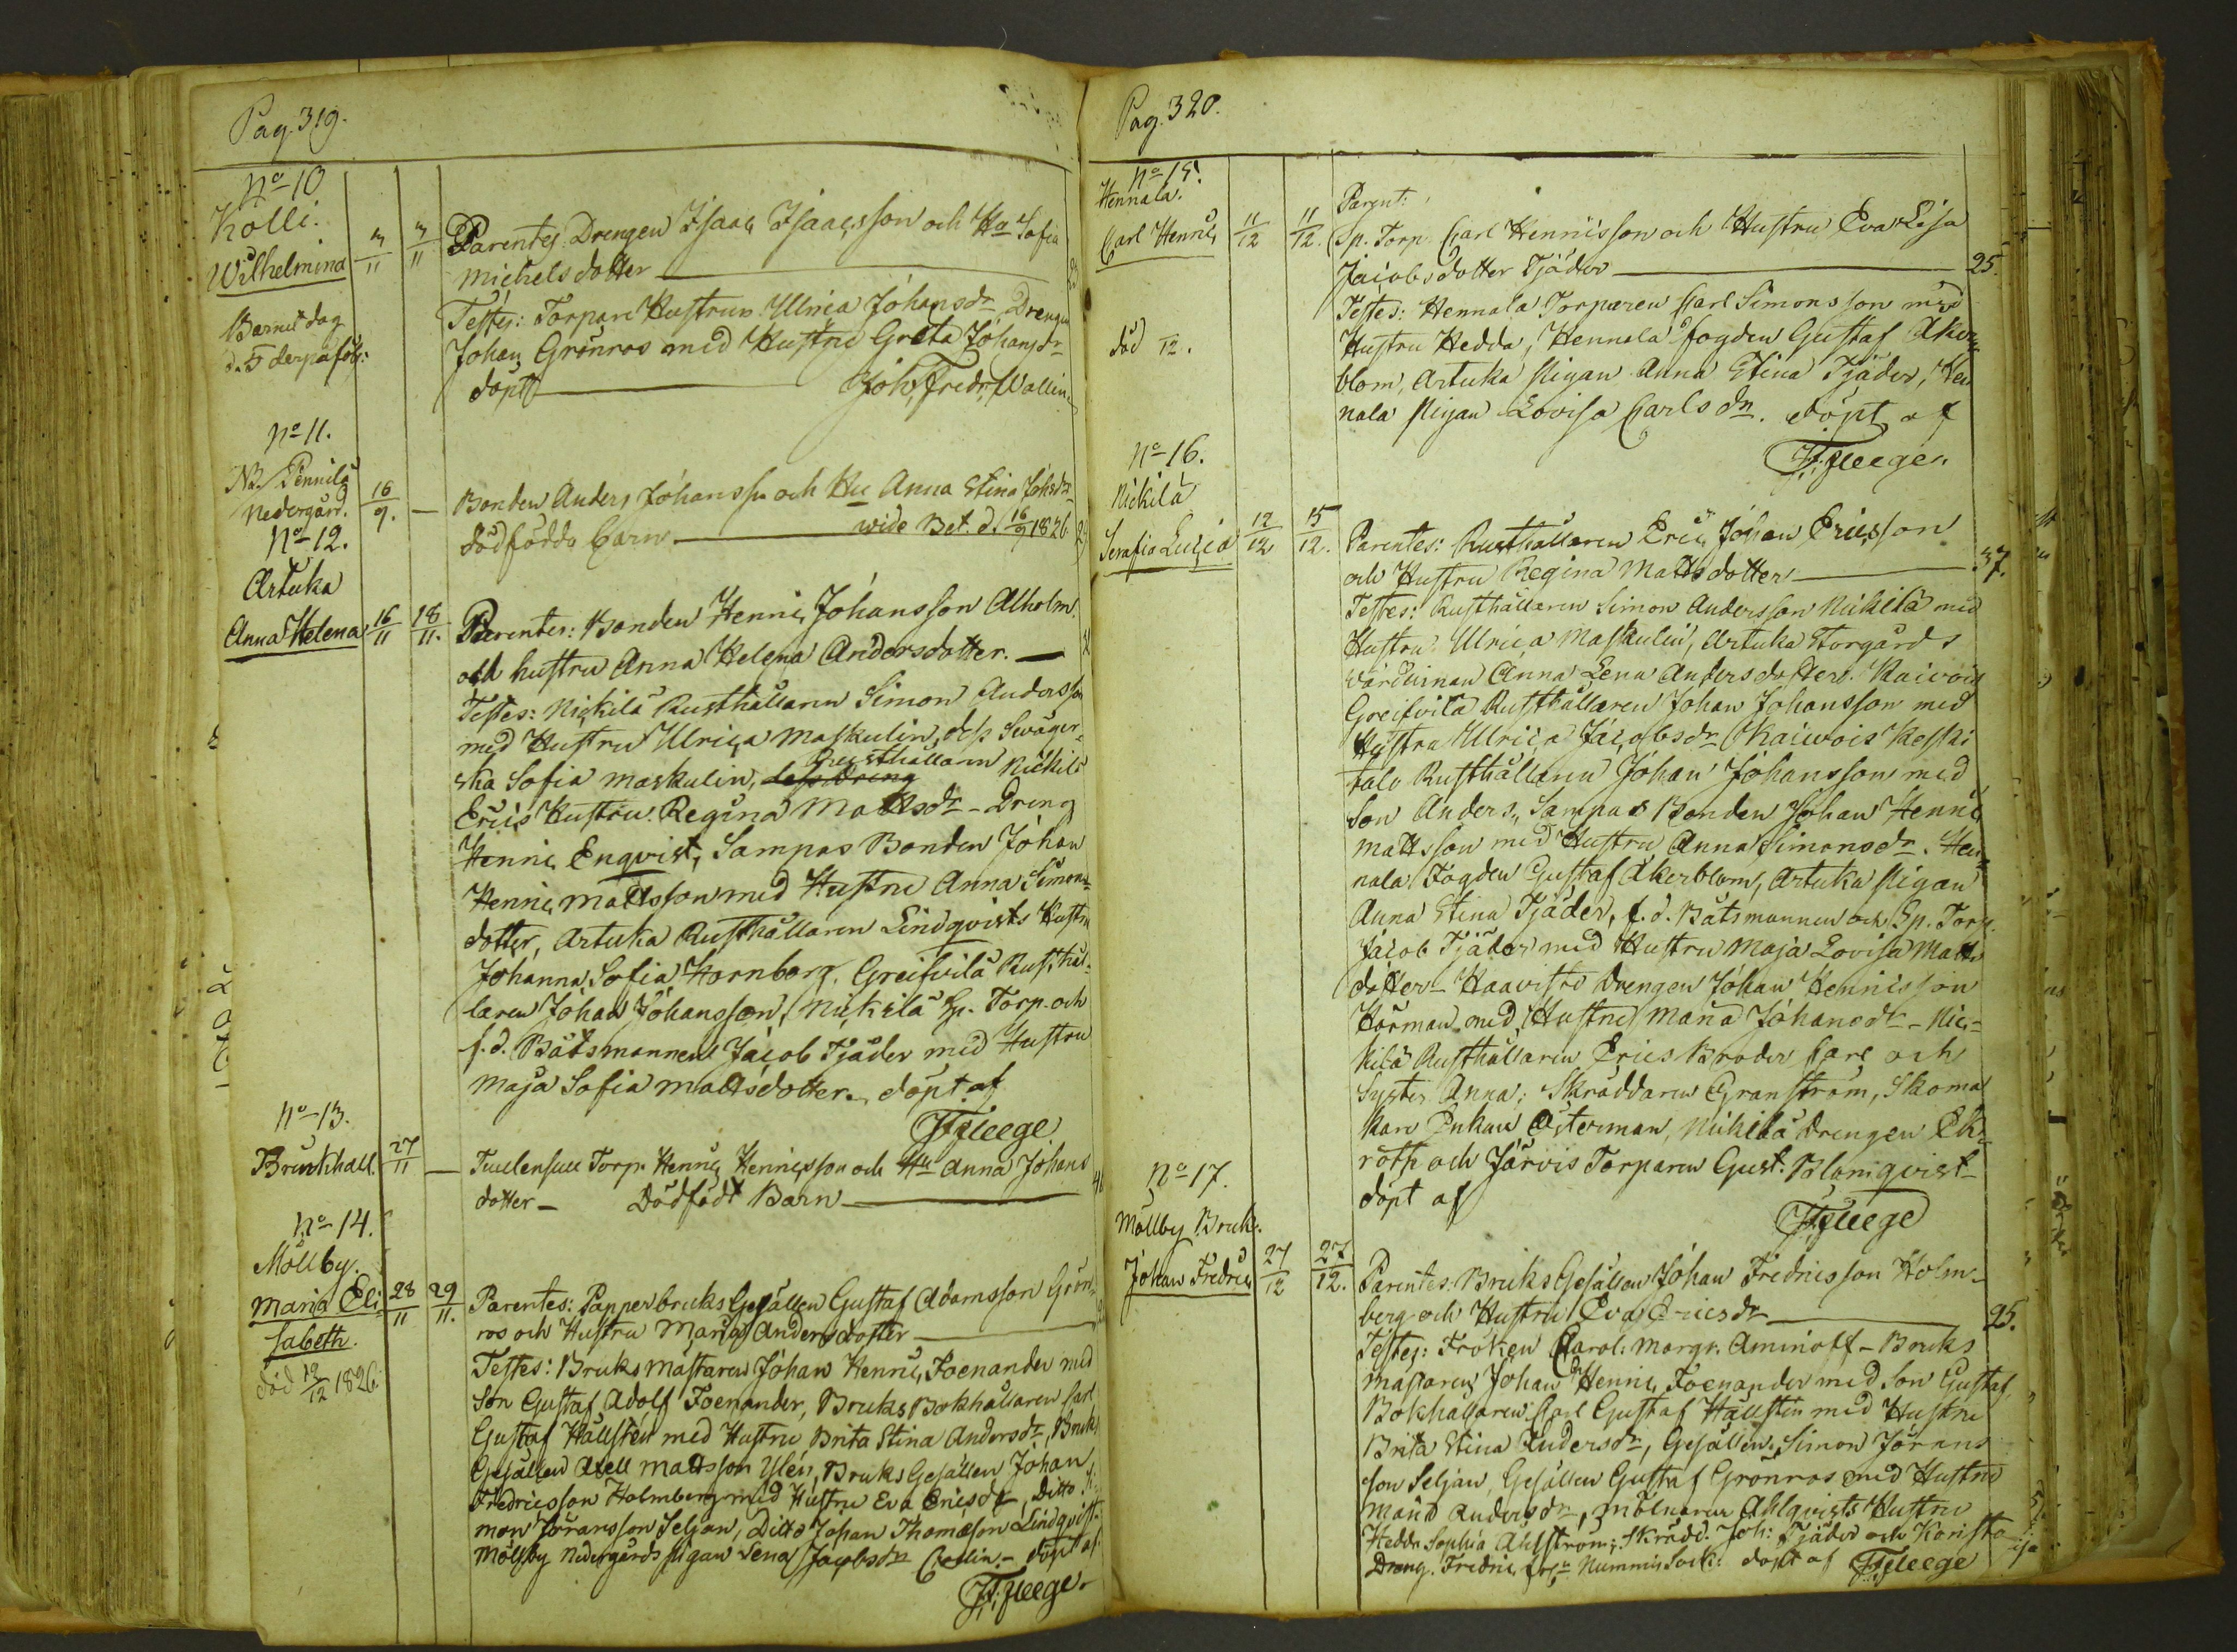 Pag. 319.
No 10
Kolli.
Wilhelmina 3/11 3/11
Barnet dog
Parentes Drengen Isaac Isaacsson och Hu Sofia
Michelsdotter
Testes: Torpare Hustrun Ulrica Johansdr Drengen
Johan Grönroos med Hustru Greta Johansdr
döpt Joh. Fredr. Wallin
No 11.
Pennilä
Nedergård. 16/9. —
Bonden Anders Johansson och Hu Anna Stina Johsdr
dödfödda barn wide Bet. d. 16/9 1826
No 12.
Artuka
Anna Helena 16/11 18/11.
Parentes: Bonden Henric Johansson Alholm
och hustru Anna Helena Andersdotter.
Testes: Nickilä Rusthållaren Simon Andersson
med Hustru Ulrica Maskulin, dess Swäger-
ska Sofia Maskulin, dess Dreng Rusthållaren Nickilä
Erics Hustru Regina Mattsdr - Dreng
Henric Enqvist, Sampas Bonden Johan
Henric Mattsson med Hustru Anna Simons-
dotter, Artuka Rusthållaren Lindqvists Hustru
Johanna Sofia Hornborg, Greifvilä Rusthål-
laren Johan Johansson, Nickilä Sp. Torp. och
f.d. Båtsmannen Jacob Tjäder med Hustru
Maja Sofia Mattsdotter. döpt af
F. F. Fleege
No 13.
Brinkhall. 27/11 —
Torp. Henric Henricsson och Hu Anna Johans
dotter - Dödfödt Barn
No 14.
Möllby.
Maria Eli- 28/11 29/11.
sabeth.
död 12/12 1826.
Parentes: Papperbruks Gesällen Gustaf Adamsson Grön-
ros och Hustru Maria Andersdotter
Testes: Bruksmästaren Johan Henric Foenander med
Son Gustaf Adolf Foenander, Bruks Bokhållaren Carl
Gustaf Hällsten med Hustru Brita Stina Andersdr, Bruks
Gesällen Axell Mattsson Ylén, Bruks Gesällen Johan
Fredricsson Holmberg med Hustru Eva Ericsdr, Ditto Si-
mon Jöransson Seljan, Ditto Johan Thomasson Lindqvist
Möllby Nedergårds pigan Lena Jacobsdr döpt af
F. F. Fleege
Pag. 320.
No 15.
Hennala.
Carl Henric 11/12 11/12.
död 12.
Parent:
Sp. Torp. Carl Henricsson och Hustru Eva Lisa
Jacobsdotter Tjäder 25.
Testes: Hennala Torparen Carl Simonsson med
Hustru Hedda, Hennala fogden Gustaf Åker-
blom, Artuka Pigan Anna Stina Tjäder, Hen
nala Pigan Lovisa Carlsdr. döpt af
F. Fleege.
No 16.
Nickilä
Serafia Lucia 12/12 15/12.
Parentes: Rusthållaren Eric Johan Ericsson
och Hustru Regina Mattsdotter 37.
Testes: Rusthållaren Simon Andersson Nickilä med
Hustru Ulrica Maskulin, Artuka Storgårds
värdinnan Anna Lena Andersdotter. Kaivois
Greifvilä Rusthållaren Johan Johansson med
Hustru Ulrica Jacobsdr Kaivois Keski
talo Rusthållaren Johan Johansson med
Son Anders, Sampas Bonden Johan Henric
Mattsson med Hustru Anna Simonsdr. Hen-
nala Fogden Gustaf Åkerblom, Artuka Pigan
Anna Stina Tjäder, f.d. Båtsmannen och Sp. Torp.
Jacob Tjäder med Hustru Maja Lovisa Matts
dotter - Haavisto Drengen Johan Henricsson
Hörman med Hustru Maria Johansdr - Nic-
kilä Rusthållaren Erics Broder Carl och
Syster Anna; Skräddaren Granström, Skoma
karen Österman, Nickilä Drengen Ek-
roth och Järvis Torparen Gust. Blomqvist
döpt af
F. Fleege
No 17.
Möllby Bruk.
Johan Fredric 27/12 27/12.
Parentes: Bruks Gesällen Johan Fredricsson Holm-
berg och Hustru Eva Ericsdr 25.
Testes: Fröken Carol: Margr. Aminoff - Bruks
mästaren Johan Henric Foenander med Son Gustaf,
Bokhållaren Carl Gustaf Hällsten med Hustru
Brita Stina Andersdr, Gesällen Simon Jörans
son Seljan, Gesällen Gustaf Grönroos med Hustru
Maria Andersdr, Mölnaren Ahlqvists Hustru
Hedda Sophia Ahlström; Skrädd. Joh: Tjäder och Koristo
Dreng. Fredric Nummis Socken döpt af F. Fleege